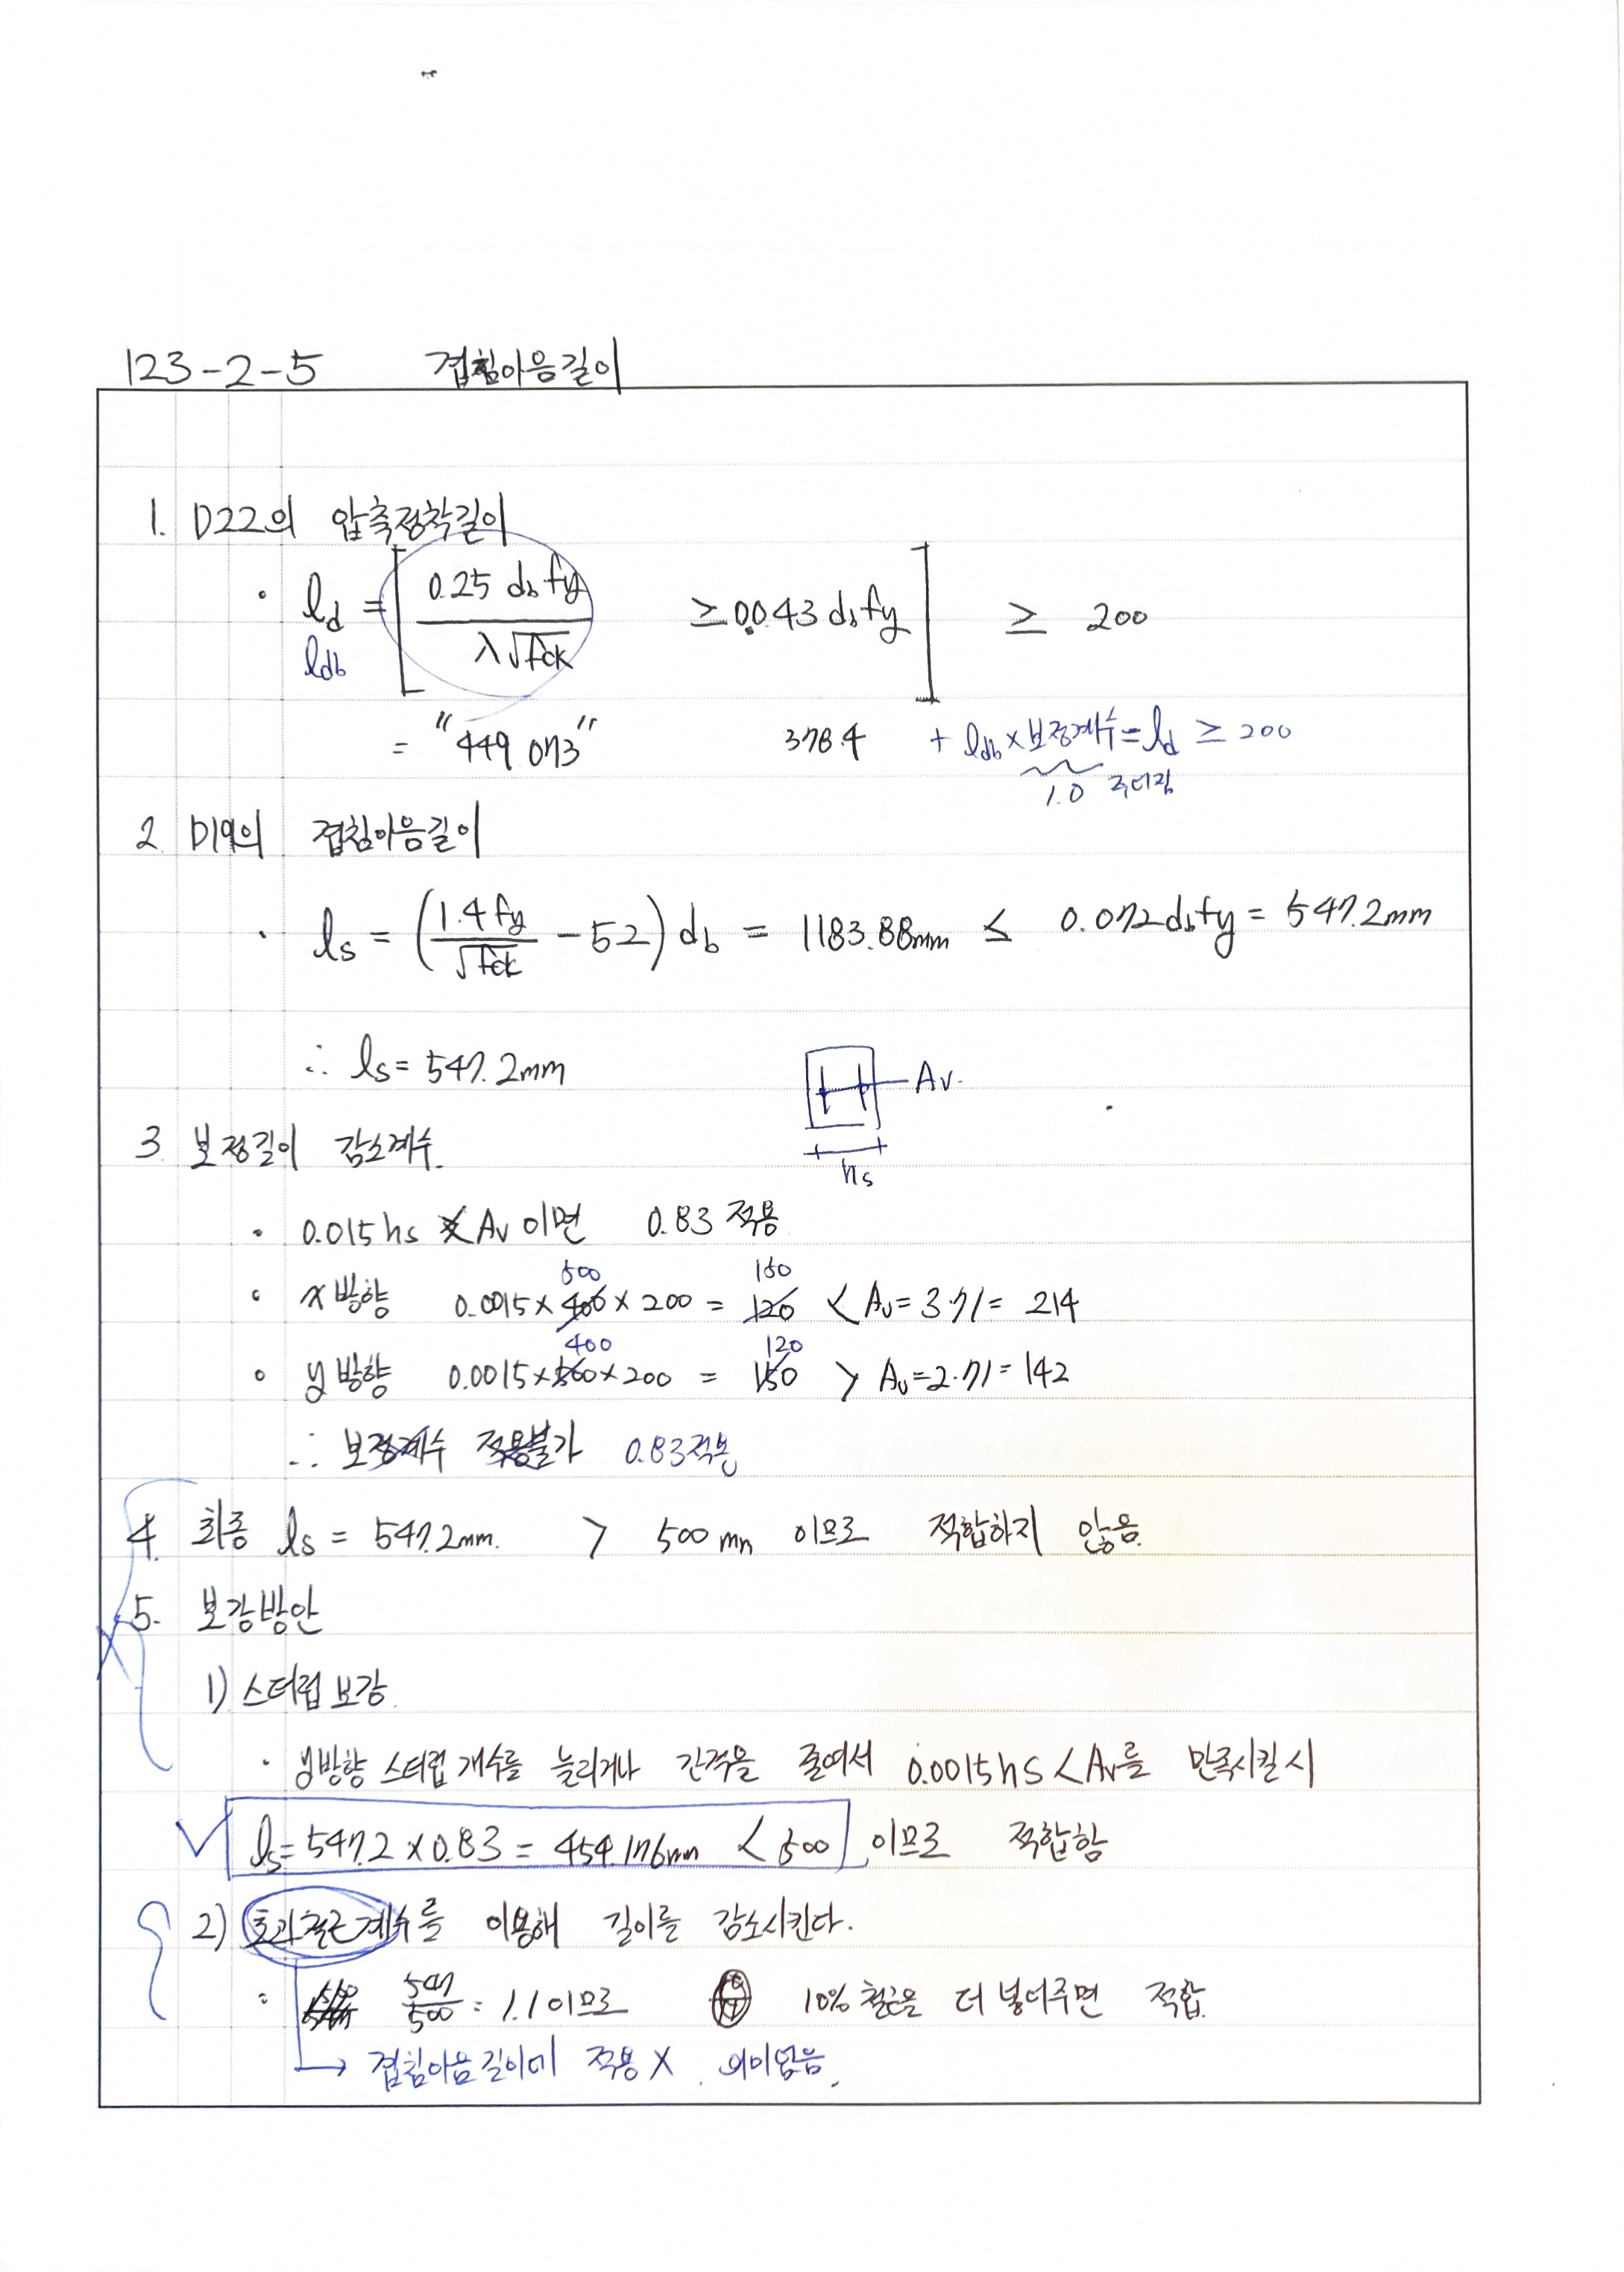 123-2-5 겹침이음길이
1. D22의 압축정착길이
· ld = [ 0.25 db fy / λ√fck ≥ 0.043 db fy ] ≥ 200
ldb
= "449.073" 378.4 + ldb × 보정계수 = ld ≥ 200
1.0 주어짐
2. D19의 겹침이음길이
· ls = (1.4fy / √fck - 52) db = 1183.88mm ≤ 0.072 db fy = 547.2mm
∴ ls = 547.2mm
Av.
hs
3. 보정길이 감소계수.
· 0.015 hs Av 이면 0.83 적용
500 150
· x방향 0.0015 × 400 × 200 = 120 < Av = 3·71 = 214
400 120
· y방향 0.0015 × 500 × 200 = 150 > Av = 2·71 = 142
∴ 보정계수 적용불가 0.83적용
4. 최종 ls = 547.2mm. > 500mm 이므로 적합하지 않음.
5. 보강방안
1) 스터럽 보강.
· y방향 스터럽 개수를 늘리거나 간격을 줄여서 0.0015hs < Av를 만족시킬 시
ls = 547.2 × 0.83 = 454.176mm < 500 이므로 적합함
2) 초과철근계수를 이용해 길이를 감소시킨다.
: 547/500 = 1.1 이므로 10% 철근을 더 넣어주면 적합.
→ 겹침이음길이에 적용 X. 의미없음.